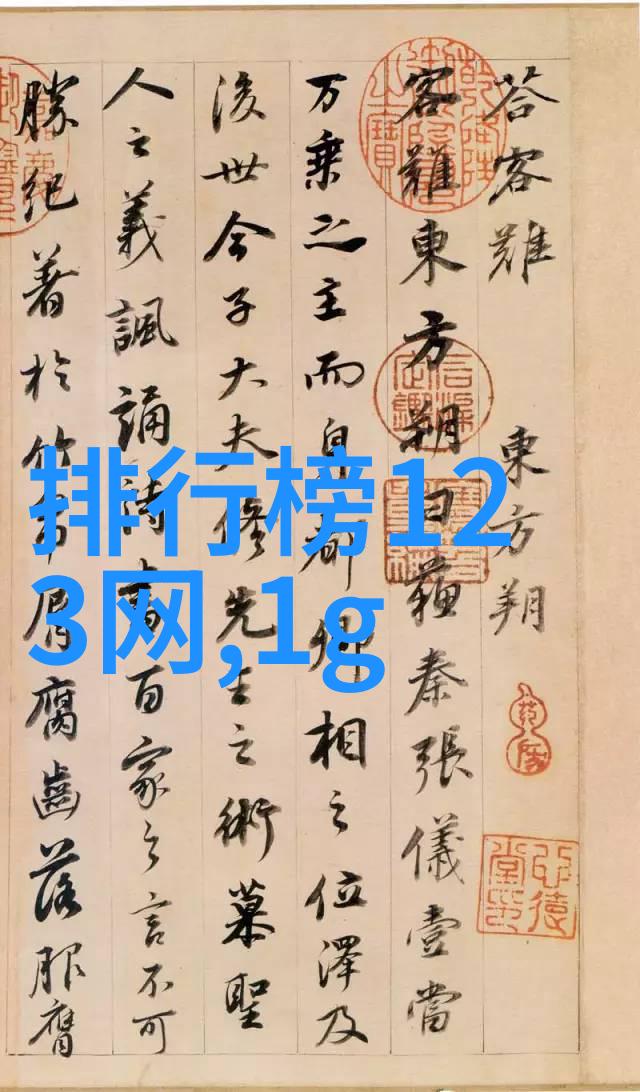 答客難 東方朔
客難東方朔曰蘇秦張儀壹當
万乗之主而身都卿相之位澤及
後世今子大夫修先王之術慕聖
人之義諷誦詩書百家之言不可
勝紀著於竹帛脣腐齒落服膺
排行榜12
3网,1g